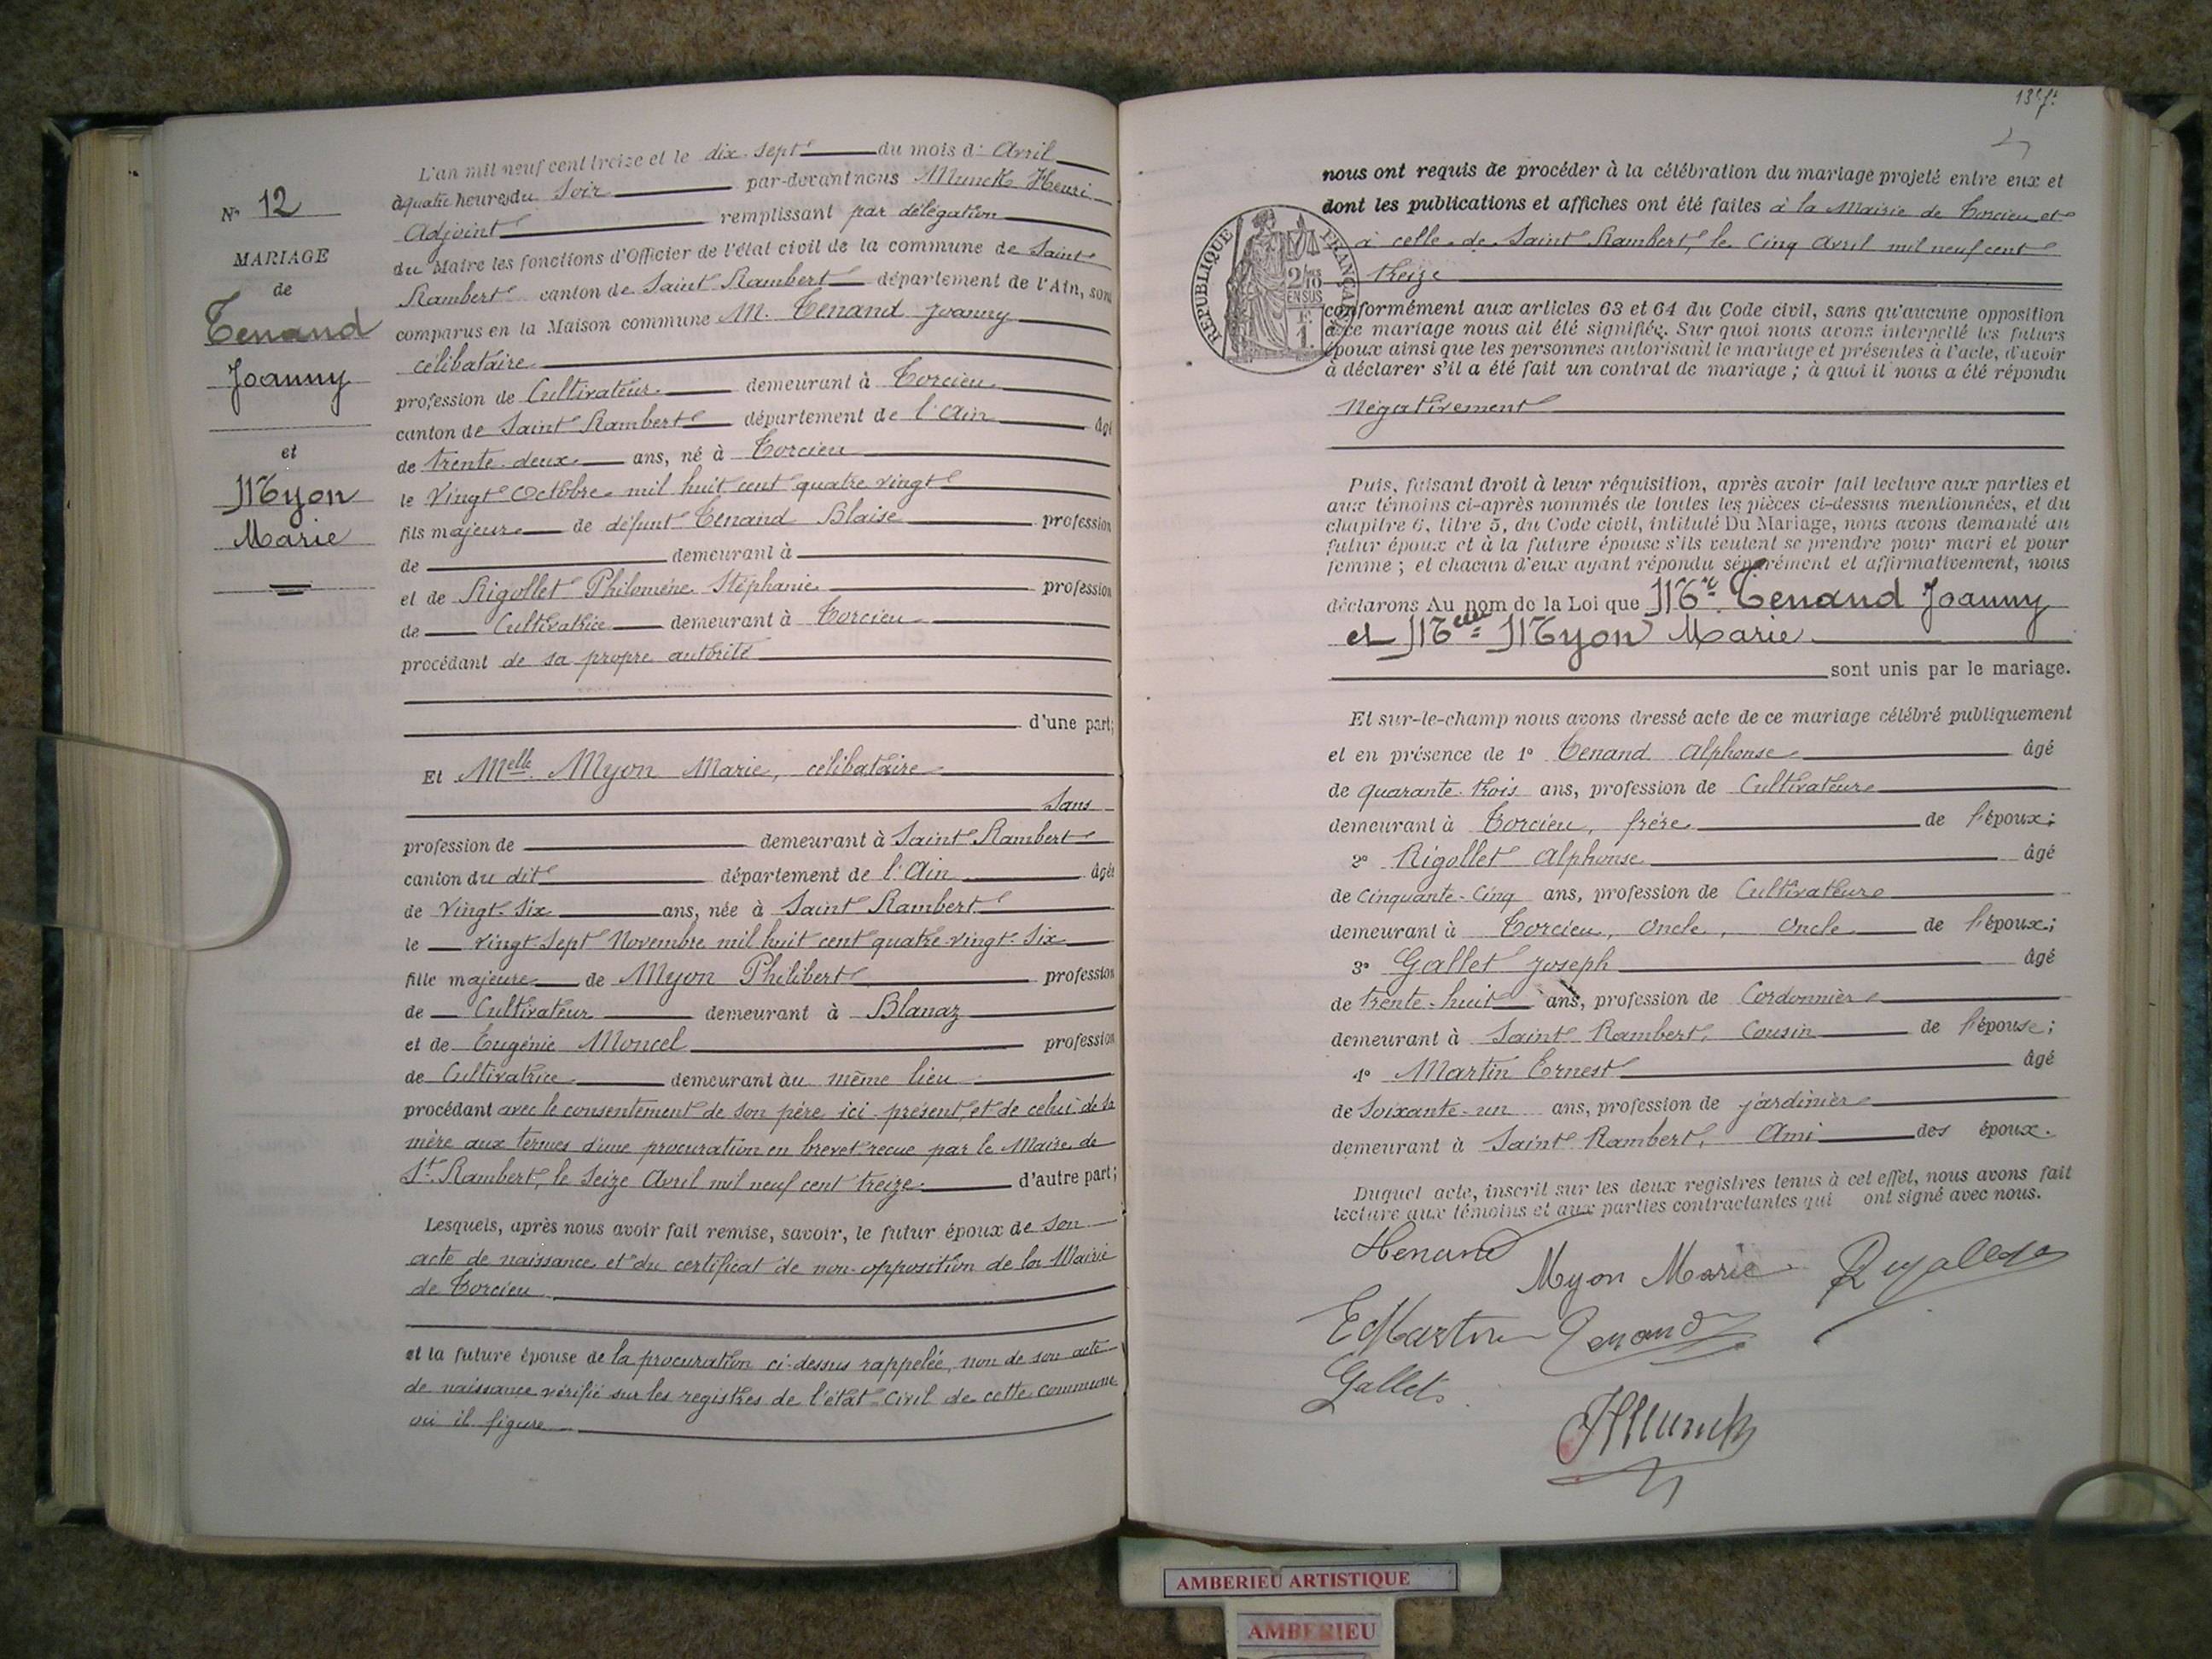 L'an mil neuf cent treize et le dix-sept du mois d' Avril
à quatre heures du Soir par-devant nous Munck Henri
Adjoint remplissant par délégation
du Maire les fonctions d'Officier de l'état civil de la commune de Saint
Rambert canton de Saint Rambert département de l'Ain, sont
comparus en la Maison commune M. Tenand Joanny
célibataire
profession de Cultivateur demeurant à Torcieu
canton de Saint Rambert département de l'Ain âgé
de trente-deux ans, né à Torcieu
le Vingt Octobre mil huit cent quatre vingt
fils majeur de défunt Tenand Blaise profession
de demeurant à
et de Rigollet Philomène Stéphanie profession
de Cultivatrice demeurant à Torcieu
procédant de sa propre autorité
d'une part;
Et Melle Myon Marie, célibataire
Sans
profession de demeurant à Saint Rambert
canton du dit département de l'Ain âgée
de Vingt-Six ans, née à Saint Rambert
le Vingt-Sept Novembre mil huit cent quatre-vingt-Six
fille majeure de Myon Philibert profession
de Cultivateur demeurant à Blanaz
et de Eugénie Moncel profession
de Cultivatrice demeurant au même lieu
procédant avec le consentement de son père ici présent, et de celui de sa
mère aux termes d'une procuration en brevet reçue par le Maire de
St Rambert, le Seize Avril mil neuf cent treize d'autre part;
Lesquels, après nous avoir fait remise, savoir, le futur époux de son
acte de naissance et du certificat de non-opposition de la Mairie
de Torcieu
et la future épouse de la procuration ci-dessus rappelée, non de son acte
de naissance vérifié sur les registres de l'état-civil de cette commune
où il figure
N° 12
MARIAGE
de
Tenand
Joanny
et
Myon
Marie
nous ont requis de procéder à la célébration du mariage projeté entre eux et
dont les publications et affiches ont été faites à la Mairie de Torcieu et
à celle de Saint Rambert, le Cinq Avril mil neuf cent
treize
conformément aux articles 63 et 64 du Code civil, sans qu'aucune opposition
à ce mariage nous ait été signifiée. Sur quoi nous avons interpellé les futurs
époux ainsi que les personnes autorisant le mariage et présentes à l'acte, d'avoir
à déclarer s'il a été fait un contrat de mariage; à quoi il nous a été répondu
Négativement
RÉPUBLIQUE FRANÇAISE
2/10
EN SUS
1F
Puis, faisant droit à leur réquisition, après avoir fait lecture aux parties et
aux témoins ci-après nommés de toutes les pièces ci-dessus mentionnées, et du
chapitre 6, titre 5, du Code civil, intitulé Du Mariage, nous avons demandé au
futur époux et à la future épouse s'ils veulent se prendre pour mari et pour
femme; et chacun d'eux ayant répondu séparément et affirmativement, nous
déclarons Au nom de la Loi que Mr Tenand Joanny
et Melle Myon Marie
sont unis par le mariage.
Et sur-le-champ nous avons dressé acte de ce mariage célébré publiquement
et en présence de 1° Tenand Alphonse âgé
de quarante-trois ans, profession de Cultivateur
demeurant à Torcieu, frère de l'époux;
2° Rigollet Alphonse âgé
de Cinquante-Cinq ans, profession de Cultivateur
demeurant à Torcieu, Oncle, Oncle de l'époux;
3° Gallet Joseph âgé
de trente-huit ans, profession de Cordonnier
demeurant à Saint Rambert, Cousin de l'épouse;
4° Martin Ernest âgé
de Soixante-un ans, profession de jardinier
demeurant à Saint Rambert, Ami des époux.
Duquel acte, inscrit sur les deux registres tenus à cet effet, nous avons fait
lecture aux témoins et aux parties contractantes qui ont signé avec nous.
Tenand
Myon Marie
Rigollet
E Martin
Tenand
Gallet
HMunck
AMBERIEU ARTISTIQUE
AMBERIEU